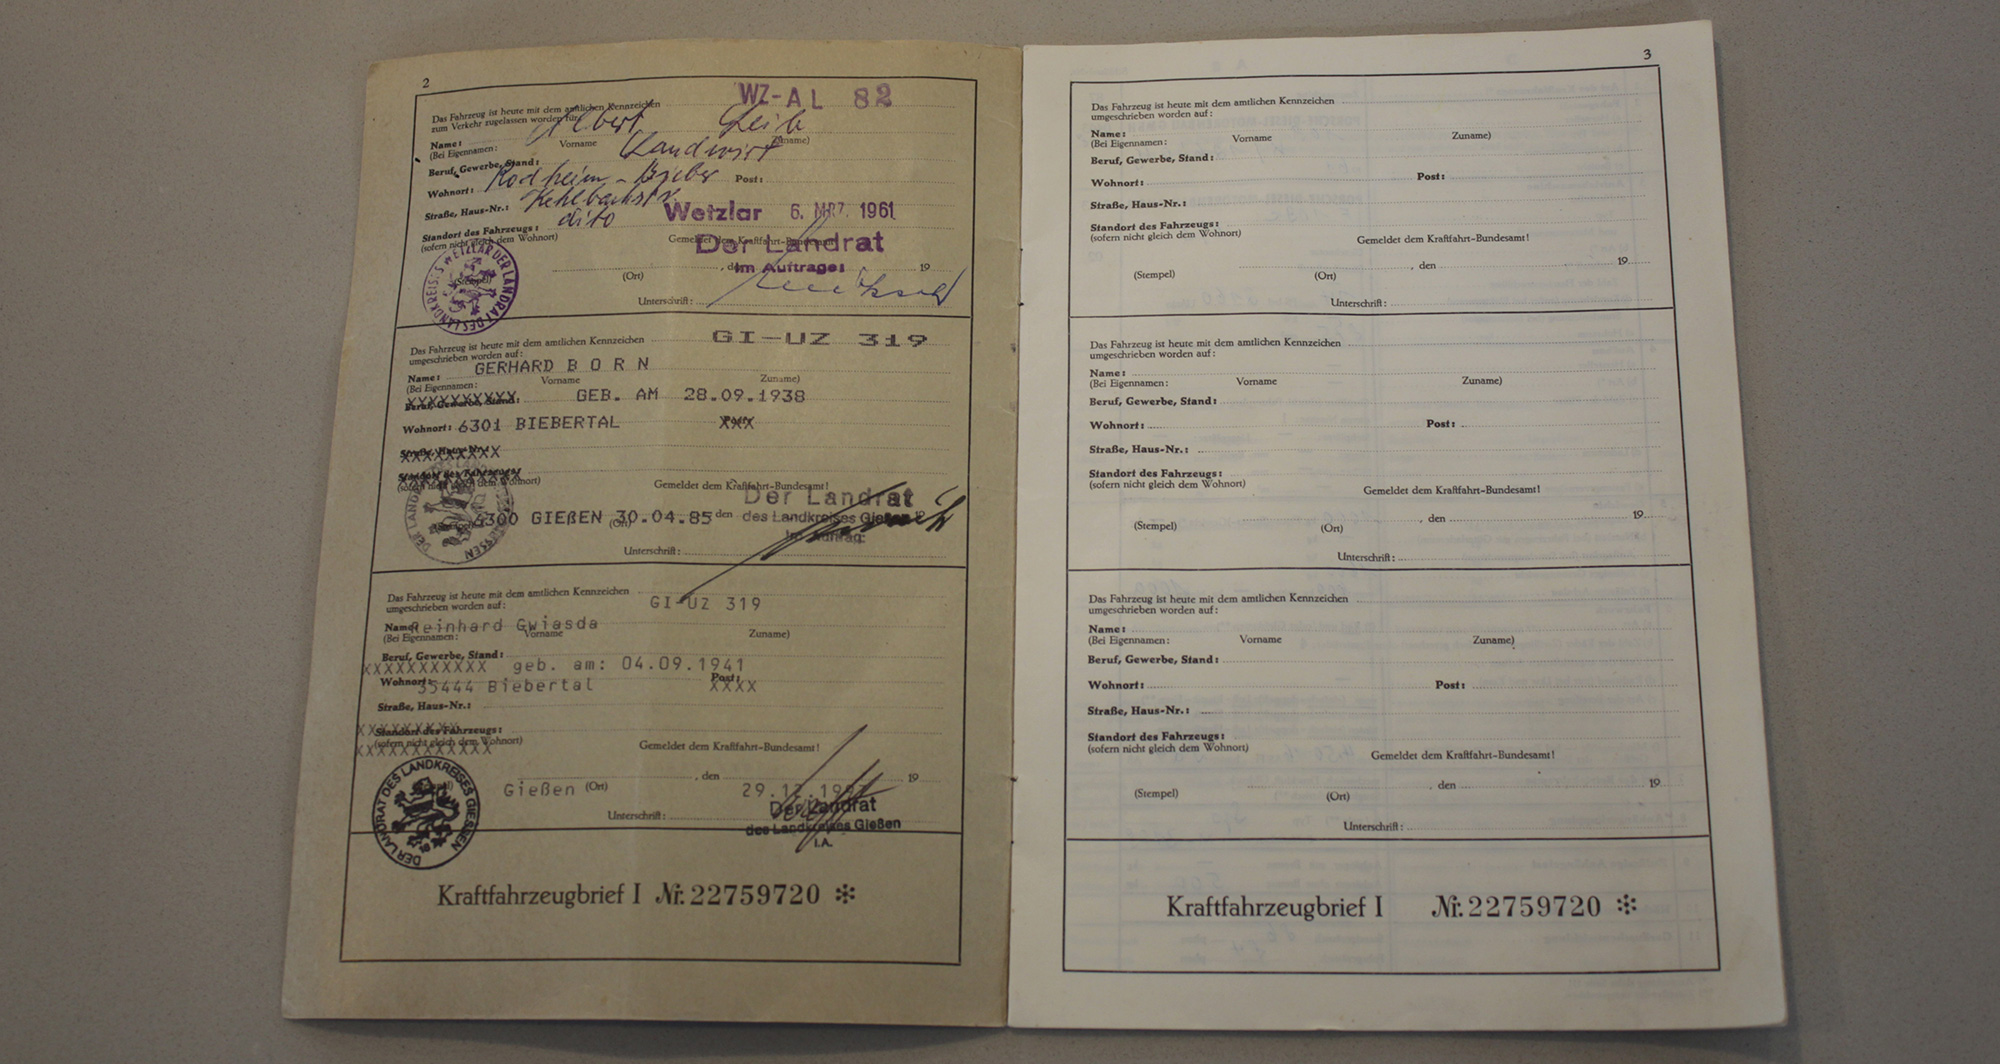 2
Das Fahrzeug ist heute mit dem amtlichen Kennzeichen WZ-AL 82
zum Verkehr zugelassen worden für:
Name: Albert
(Bei Eigennamen: Vorname Zuname)
Beruf, Gewerbe, Stand: Landwirt
Wohnort: Rodheim-Bieber Post:
Straße, Haus-Nr.: Kehlbachstr.
Standort des Fahrzeugs: dito
(sofern nicht gleich dem Wohnort)
Wetzlar 6. MRZ. 1961
Gemeldet dem Kraftfahrt-Bundesamt!
Der Landrat
Im Auftrage:
(Stempel) (Ort) , den 19
Unterschrift:
LANDKREISES WETZLAR DER LANDRAT DES
Das Fahrzeug ist heute mit dem amtlichen Kennzeichen GI-UZ 319
umgeschrieben worden auf:
Name: GERHARD BORN
(Bei Eigennamen: Vorname Zuname)
Beruf, Gewerbe, Stand: XXXXXXXXXX GEB. AM 28.09.1938
Wohnort: 6301 BIEBERTAL Post: XXX
Straße, Haus-Nr.: XXXXXXXXX
Standort des Fahrzeugs:
(sofern nicht gleich dem Wohnort)
Gemeldet dem Kraftfahrt-Bundesamt!
Der Landrat
6300 GIEßEN (Ort) 30.04.85 den des Landkreises Gießen
Im Auftrag:
Unterschrift:
Das Fahrzeug ist heute mit dem amtlichen Kennzeichen
umgeschrieben worden auf: GI-UZ 319
Name: Reinhard Gwiasda
(Bei Eigennamen: Vorname Zuname)
Beruf, Gewerbe, Stand:
XXXXXXXXXX geb. am: 04.09.1941
Wohnort: 35444 Biebertal Post: XXXX
Straße, Haus-Nr.:
Standort des Fahrzeugs:
(sofern nicht gleich dem Wohnort)
Gemeldet dem Kraftfahrt-Bundesamt!
Gießen (Ort) , den 29.12. 19
Unterschrift:
Der Landrat
des Landkreises Gießen
I.A.
DER LANDRAT DES LANDKREISES GIESSEN
Kraftfahrzeugbrief I Nr. 22759720 *
3
Das Fahrzeug ist heute mit dem amtlichen Kennzeichen
umgeschrieben worden auf:
Name:
(Bei Eigennamen: Vorname Zuname)
Beruf, Gewerbe, Stand:
Wohnort: Post:
Straße, Haus-Nr.:
Standort des Fahrzeugs:
(sofern nicht gleich dem Wohnort)
Gemeldet dem Kraftfahrt-Bundesamt!
(Stempel) (Ort) , den 19
Unterschrift:
Das Fahrzeug ist heute mit dem amtlichen Kennzeichen
umgeschrieben worden auf:
Name:
(Bei Eigennamen: Vorname Zuname)
Beruf, Gewerbe, Stand:
Wohnort: Post:
Straße, Haus-Nr.:
Standort des Fahrzeugs:
(sofern nicht gleich dem Wohnort)
Gemeldet dem Kraftfahrt-Bundesamt!
(Stempel) (Ort) , den 19
Unterschrift:
Das Fahrzeug ist heute mit dem amtlichen Kennzeichen
umgeschrieben worden auf:
Name:
(Bei Eigennamen: Vorname Zuname)
Beruf, Gewerbe, Stand:
Wohnort: Post:
Straße, Haus-Nr.:
Standort des Fahrzeugs:
(sofern nicht gleich dem Wohnort)
Gemeldet dem Kraftfahrt-Bundesamt!
(Stempel) (Ort) , den 19
Unterschrift:
Kraftfahrzeugbrief I Nr. 22759720 *